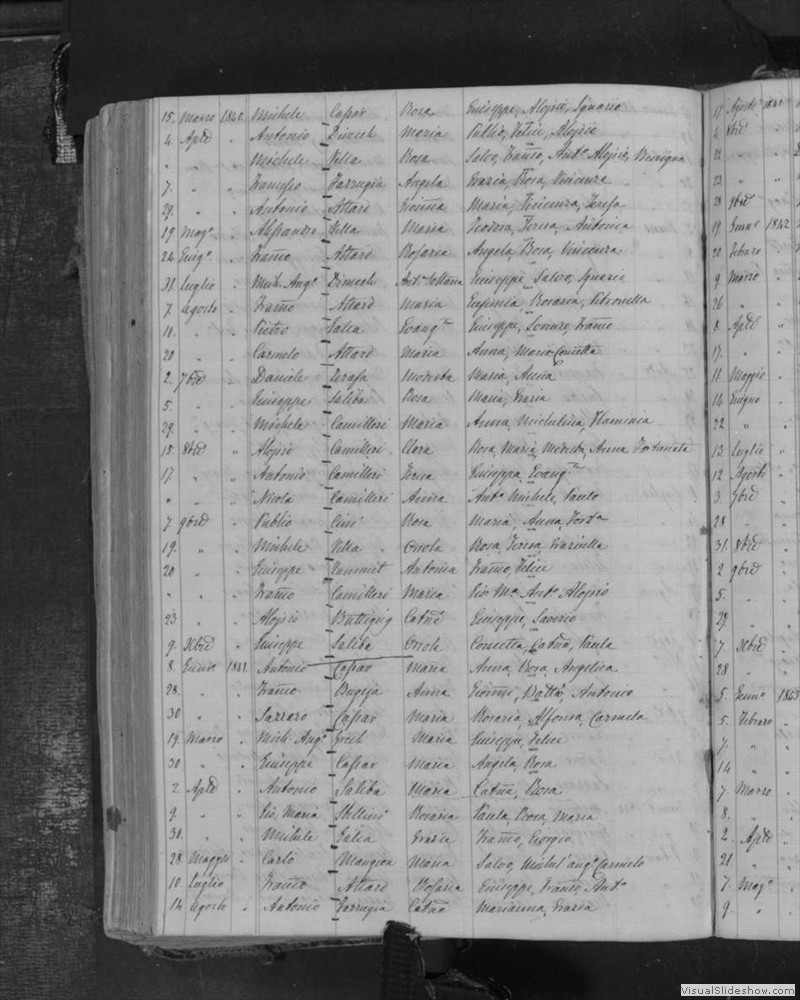 15. Marzo 1840. Michele Cassar Rosa Giuseppe, Aloisio, Ignazio
4. Aple " Antonio Dimech Maria Publio, Felice, Aloisio
" " " Michele Vella Rosa Salvo, Franco, Anto Aloisio, Benigna
7. " " Francesco Farrugia Angela Grazia, Rosa, Vincenza
29. " " Antonio Attard Maria, Vincenza, Teresa
19. Mago " Vella Maria Teodora, Teresa, Antonia
24. Giugo " Franco Attard Rosaria Angela, Rosa, Vincenza
31. Luglio " Mich. Ango Dimech Anta Sultana Giuseppe, Salvo, Ignazio
7. Agosto " Franco Attard Maria Eufemia, Rosaria, Petronella
11. " " Pietro Galea Evangta Giuseppe, Lorenzo, Franco
20 " " Carmelo Attard Maria Anna, Maria Concetta
2. 7bre " Daniele Zerafa Modesta Maria, Anna
5. " " Giuseppe Saliba Rosa Maria, Grazia
29. " " Michele Camilleri Maria Anna, Michelina, Flaminia
15. 8bre " Aloisio Camilleri Clara Rosa, Maria, Modesta, Anna Fortunata
17. " " Antonio Camilleri Teresa Giuseppa, Evangta
" " " Nicola Camilleri Anna Anto Michele, Paulo
7. 9bre " Publio Rosa Maria, Anna, Forta
19. " " Michele Vella Orsola Rosa, Teresa, Graziella
20 " " Giuseppe Zammit Antonia Franco, Felice
" " " Franco Camilleri Maria Gio Ma Anto Aloisio
23 " " Aloisio Buttigieg Catna Giuseppe, Saverio
9. Xbre " Giuseppe Saliba Orsola Concetta, Catna, Paula
8. Genno 1841. Antonio Cassar Maria Anna, Rosa, Angelica
28. " " Franco Bugeja Anna Batta, Antonio
30 " " Lazzaro Cassar Maria Rosaria, Alfonsa, Carmela
19. Marzo " Mich. Ango Grech Maria Giuseppe, Felice
30 " " Giuseppe Cassar Maria Angela, Rosa
2. Aple " Antonio Saliba Maria Catna, Rosa
9. " " Gio. Maria Stellini Rosaria Paula, Rosa, Maria
30. " " Michele Galea Grazia Franco, Giorgio
28. Maggio " Carlo Mangion Maria Salvo, Michel'ango Carmelo
10. Luglio " Franco Attard Rosaria Giuseppe, Franco, Anto
14. Agosto " Antonio Farrugia Catna Marianna, Grazia
17. Agosto 1841.
4. 8bre "
21. " "
23. " "
28 9bre "
19. Genno 1842
21. Febraro "
9 Marzo "
26 " "
8. Aple "
17. " "
11. Maggio "
14. Giugno "
22 " "
13. Luglio "
12. Agosto "
3. 7bre "
28 " "
31. 8bre "
2 9bre "
5. " "
29. " "
7. Xbre "
28 " "
5. Genno 1843
5. Febraro "
7. " "
14 " "
7. Marzo "
8. " "
2. Aple "
21 " "
7. Mago "
9. " "
VisualSlideshow.com